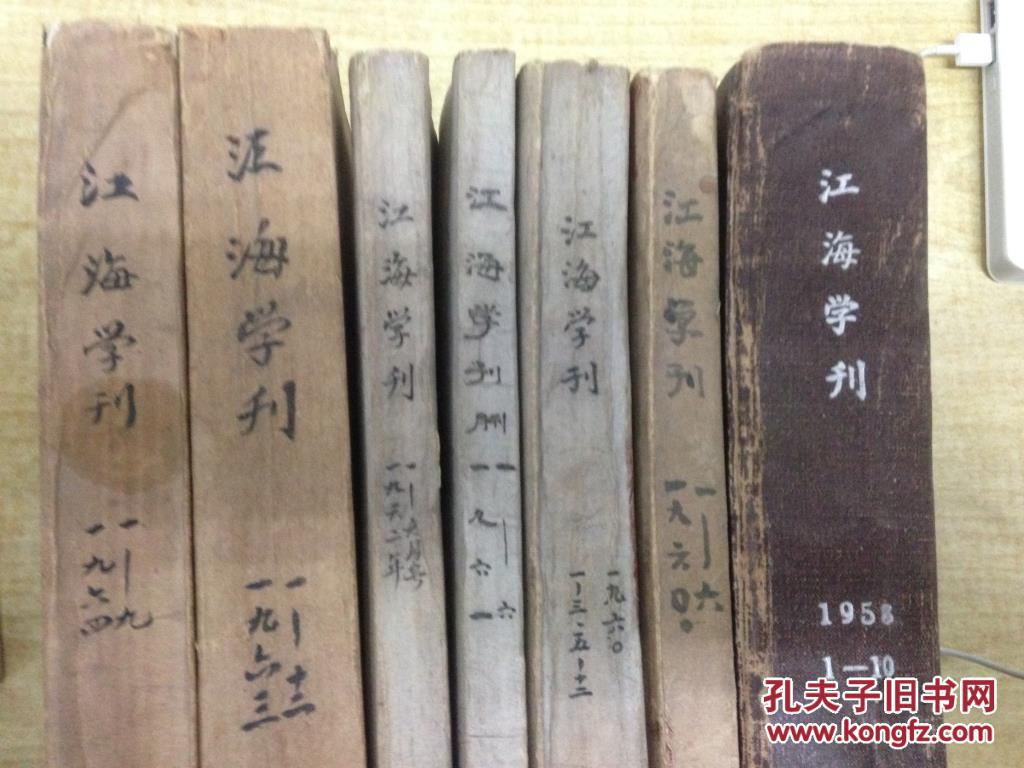 江海学刊
一九六四
一—九
江海学刊
一九六三
一—十二
江海学刊
一九六二年
一—六月号
江海学刊
一九六一
一—六
江海学刊
一九六〇
一—三·五—十二
江海学刊
一九六〇
一—六
江海学刊
1958
1—10
孔夫子旧书网
www.kongfz.com